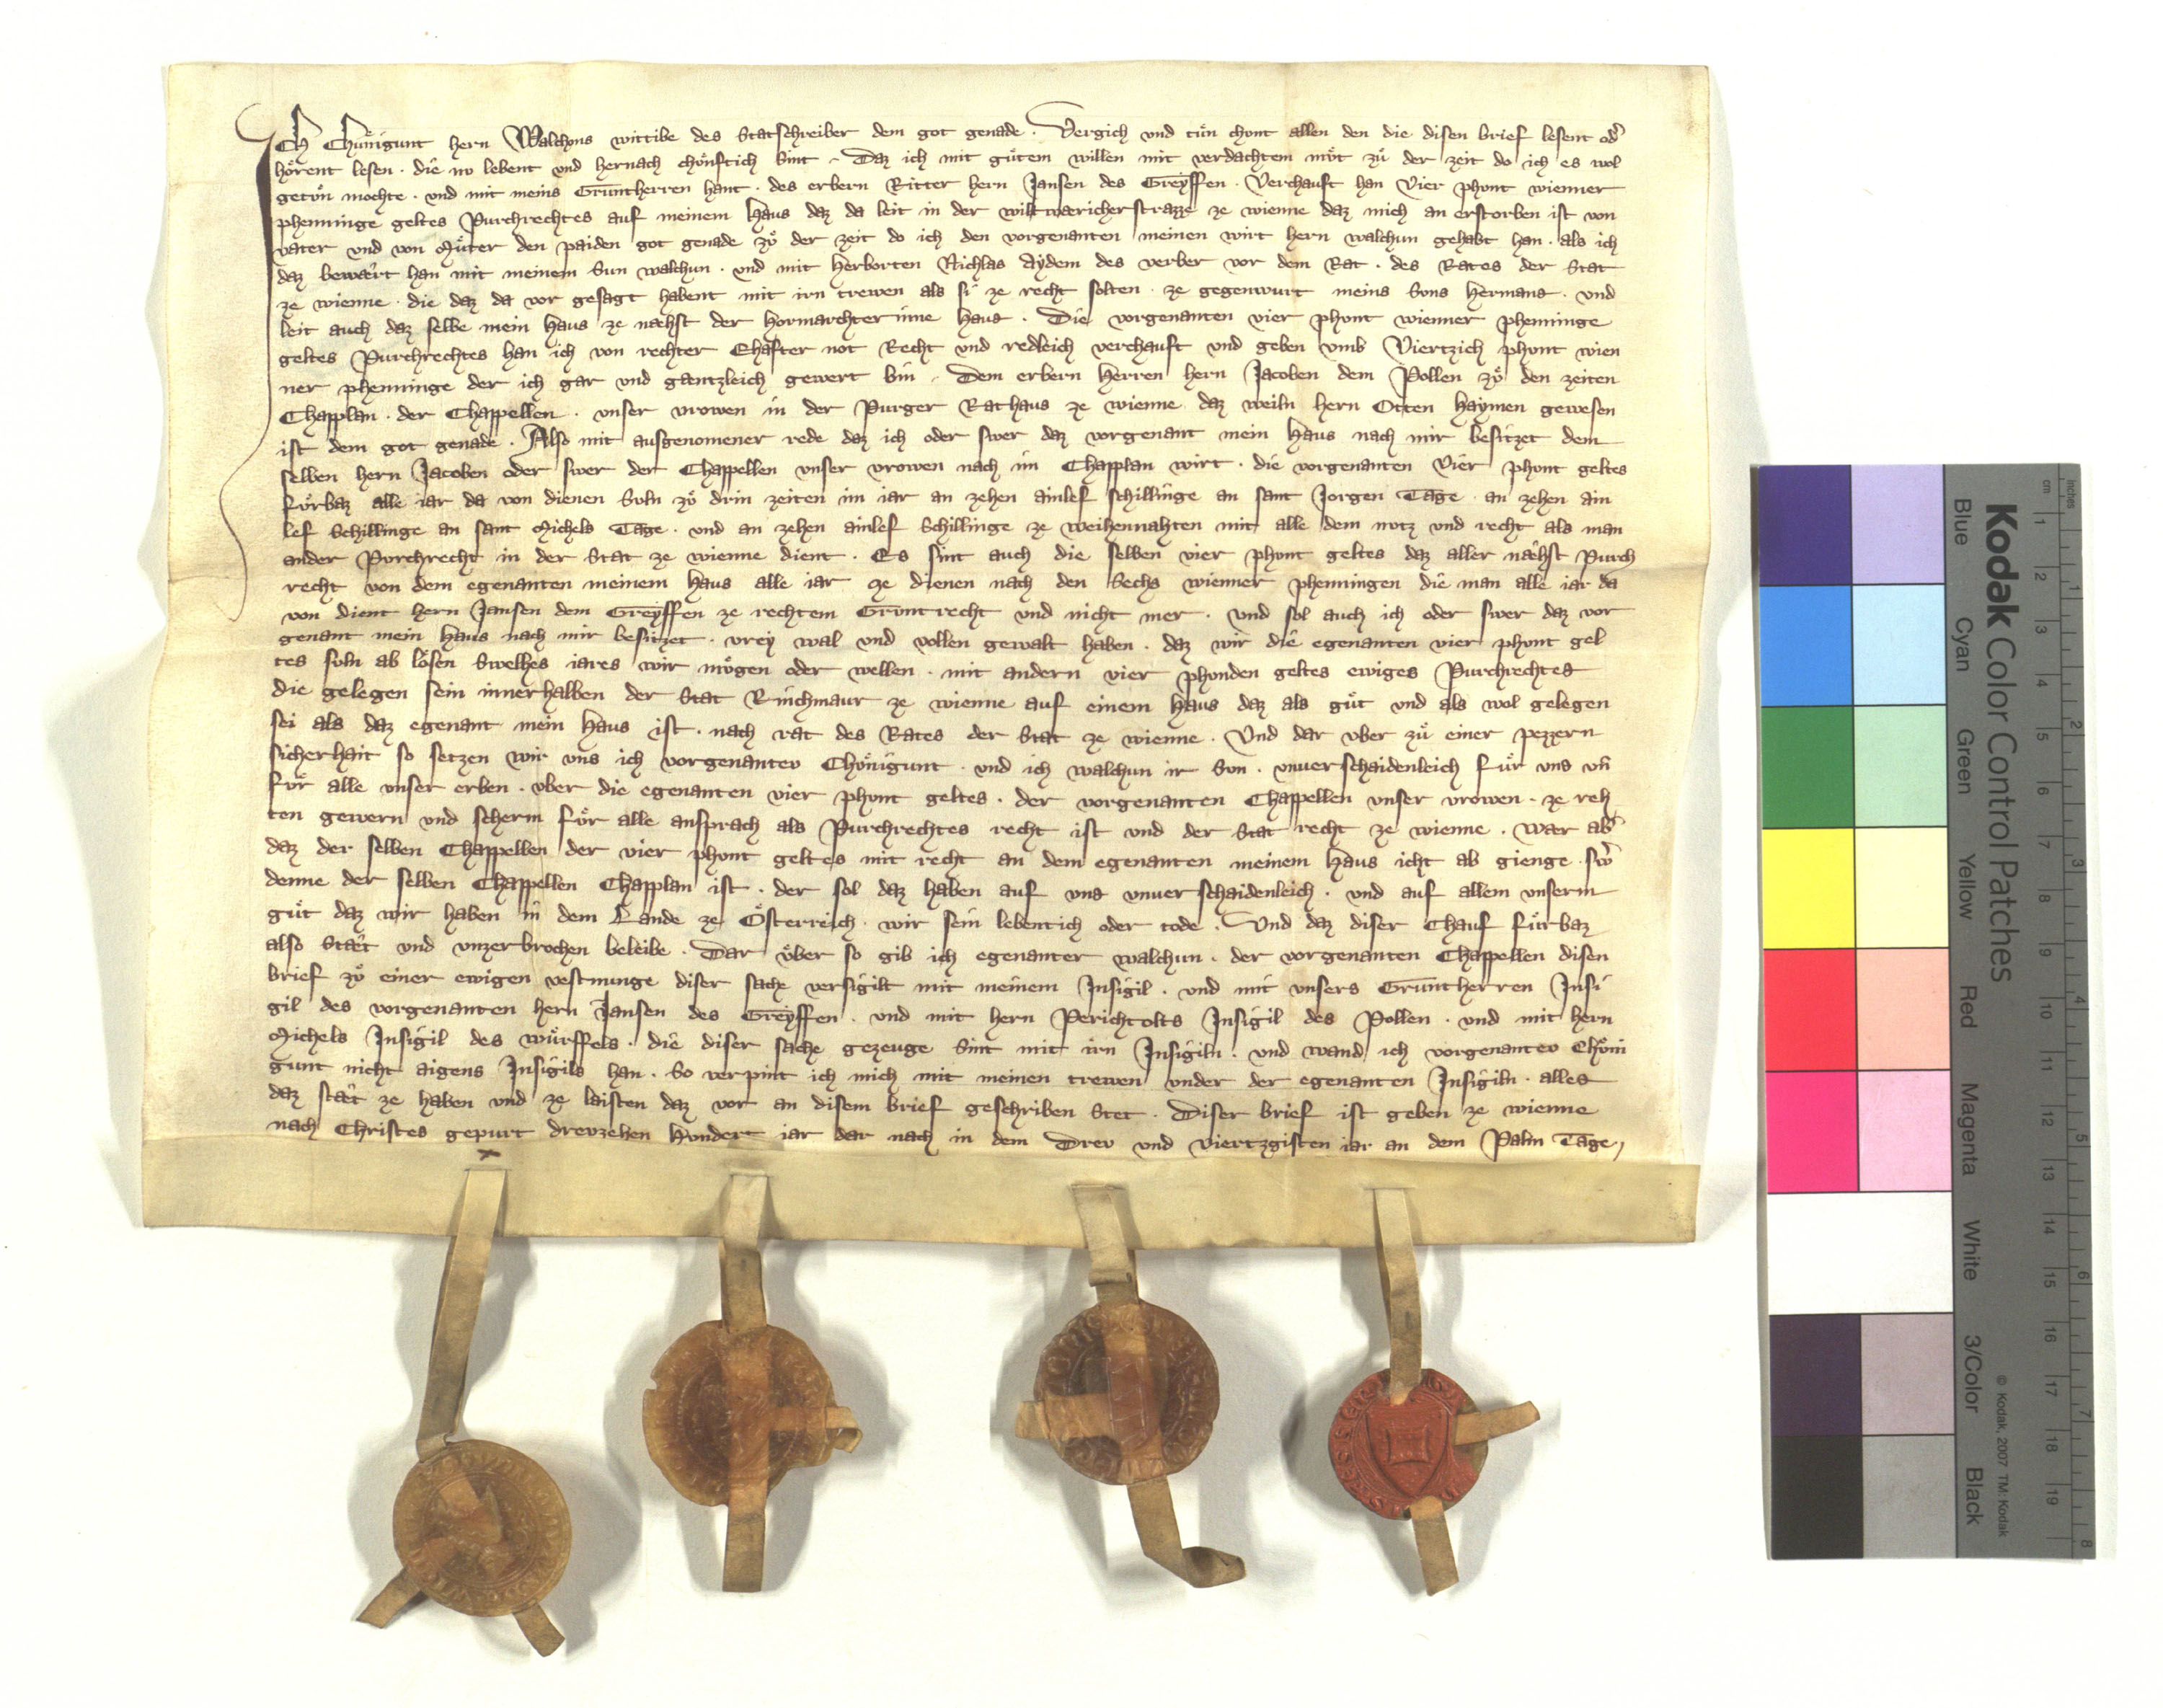 Ich Chunigunt hern Walchuns wittibe des Statschreiber dem got genade. Vergich und tuͦn chunt allen den die disen brief lesent oder
hoͤrent lesen. die nu lebent und hernach chuͤnftich sint. Daz ich mit guͦtem willen mit verdachtem muͦt zuͦ der zeit do ich es wol
getuͦn mochte. und mit meins Gruntherren hant. des erbern Ritter hern Jansen des Greyffen. Verchauft han Vier phunt wienner
phenninge geltes Purchrechtes auf meinem Haus daz da leit in der wiltwaericherstrazze ze wienne daz mich an erstorben ist von
vater und von Muͦter den paiden got genade zuͦ der zeit do ich den vorgenanten meinen wirt hern walchun gehabt han. als ich
daz bewaert han mit meinem Sun walchun. und mit Herborten Nichlas Aydem des verber vor dem Rat. des Rates der Stat
ze wienne. die daz da vor gesagt habent mit irn trewen als si ze recht solten. ze gegenwurt meins Suns Hermans. und
leit auch daz selbe mein Haus ze naehst der Hormarchterinne Haus. Die vorgenanten vier phunt wienner phenninge
geltes Purchrechtes han ich von rechter Ehafter not Recht und redleich verchauft und geben umb Viertzich phunt wien
ner phenninge der ich gar und gantzleich gewert bin. Dem erbern Herren hern Jacoben dem Pollen zuͦ den zeiten
Chapplan. der Chappellen. unser vrowen in der Purger Rathaus ze wienne daz weiln hern Otten Haymen gewesen
ist dem got genade. Also mit ausgenomener rede daz ich oder swer daz vorgenant mein Haus nach mir besitzet dem
selben hern Jacoben oder swer der Chappellen unser vrowen nach im Chapplan wirt. die vorgenanten Vier phunt geltes
fuͤrbaz alle iar da von dienen suln zuͦ drin zeiten im iar an zehen ainlef schillinge an sant Jorgen Tage an zehen ain
lef Schillinge an sant Michels Tage. und an zehen ainlef Schillinge ze weihennahten mit alle dem nutz und recht als man
ander Purchrecht in der Stat ze wienne dient. Es sint auch die selben vier phunt geltes daz aller naehst Purch
recht von dem egenanten meinem Haus alle iar ze dienen nach den Sechs wienner phenningen die man alle iar da
von dient hern Jansen dem Greyffen ze rechtem Gruntrecht und nicht mer. und sol auch ich oder swer daz vor
genant mein Haus nach mir besitzet. vrey wal und vollen gewalt haben. daz wir die egenanten vier phunt gel
tes suln ab loͤsen Swelhes iares wir muͤgen oder wellen. mit andern vier phunden geltes ewiges Purchrechtes
die gelegen sein innerhalben der Stat Rinchmaur ze wienne auf einem Haus daz als guͦt und als wol gelegen
sei als daz egenant mein Haus ist. nach rat des Rates der Stat ze wienne. Und dar uber zuͦ einer pezzern
sicherhait so setzen wir uns ich vorgenantev Chuͤnigunt. und ich walchun ir Sun. unverschaidenleich fuͤr uns und
fuͤr alle unser erben. uber die egenanten vier phunt geltes. der vorgenanten Chappellen unser vrowen. ze reh
ten gewern und scherm fuͤr alle ansprach als Purchrechtes recht ist und der Stat recht ze wienne. war aber
daz der selben Chappellen der vier phunt geltes mit recht an dem egenanten meinem Haus icht ab gienge. swer
denne der selben Chappellen Chapplan ist. der sol daz haben auf uns unverschaidenleich. und auf allem unserm
guͦt daz wir haben in dem Lande ze Oͤsterreich. wir sein lebentich oder tode. Und daz diser Chauf fuͤrbaz
also Staet und unzerbrochen beleibe. Dar uͤber so gib ich egenanter walchun. der vorgenanten Chappellen disen
brief zuͦ einer ewigen vestnunge diser sache versigilt mit meinem Insigil. und mit unsers Gruntherren Insi
gil des vorgenanten hern Jansen des Greyffen. und mit hern Perichtolts Insigil des Pollen. und mit hern
Michels Insigil des wuͤrffels. die diser sache gezeuge sint mit irn Insigiln. und wand ich vorgenantev Chuͤni
gunt nicht aigens Insigils han. So verpint ich mich mit meinen trewen under der egenanten Insigiln. alles
daz staet ze haben und ze laisten daz vor an disem brief geschriben stet. Diser brief ist geben ze wienne
nach Christes gepurt drevzehen Hundert iar dar nach in dem Drev und Viertzgisten iar an dem Palm Tage,
Kodak Color Control Patches
Blue Cyan Green Yellow Red Magenta White 3/Color Black
© Kodak, 2007 TM: Kodak
Inches 1 2 3 4 5 6 7 8
cm 1 2 3 4 5 6 7 8 9 10 11 12 13 14 15 16 17 18 19